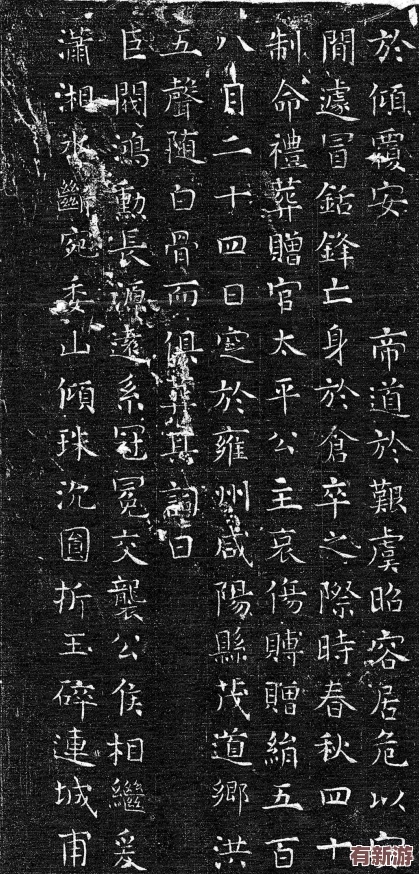 於傾覆安 帝道於艱虞昭容居危以
間遽冒銛鋒亡身於倉卒之際時春秋四十
制命禮葬贈官太平公主哀傷賻贈絹五百
八月二十四日窆於雍州咸陽縣茂道鄉洪
五聲随白骨而俱葬其詞曰
巨閥鴻勳長源遠系冠冕交襲公侯相繼爰
瀟湘水斷宛委山傾珠沉圓折玉碎連城甫
有新游